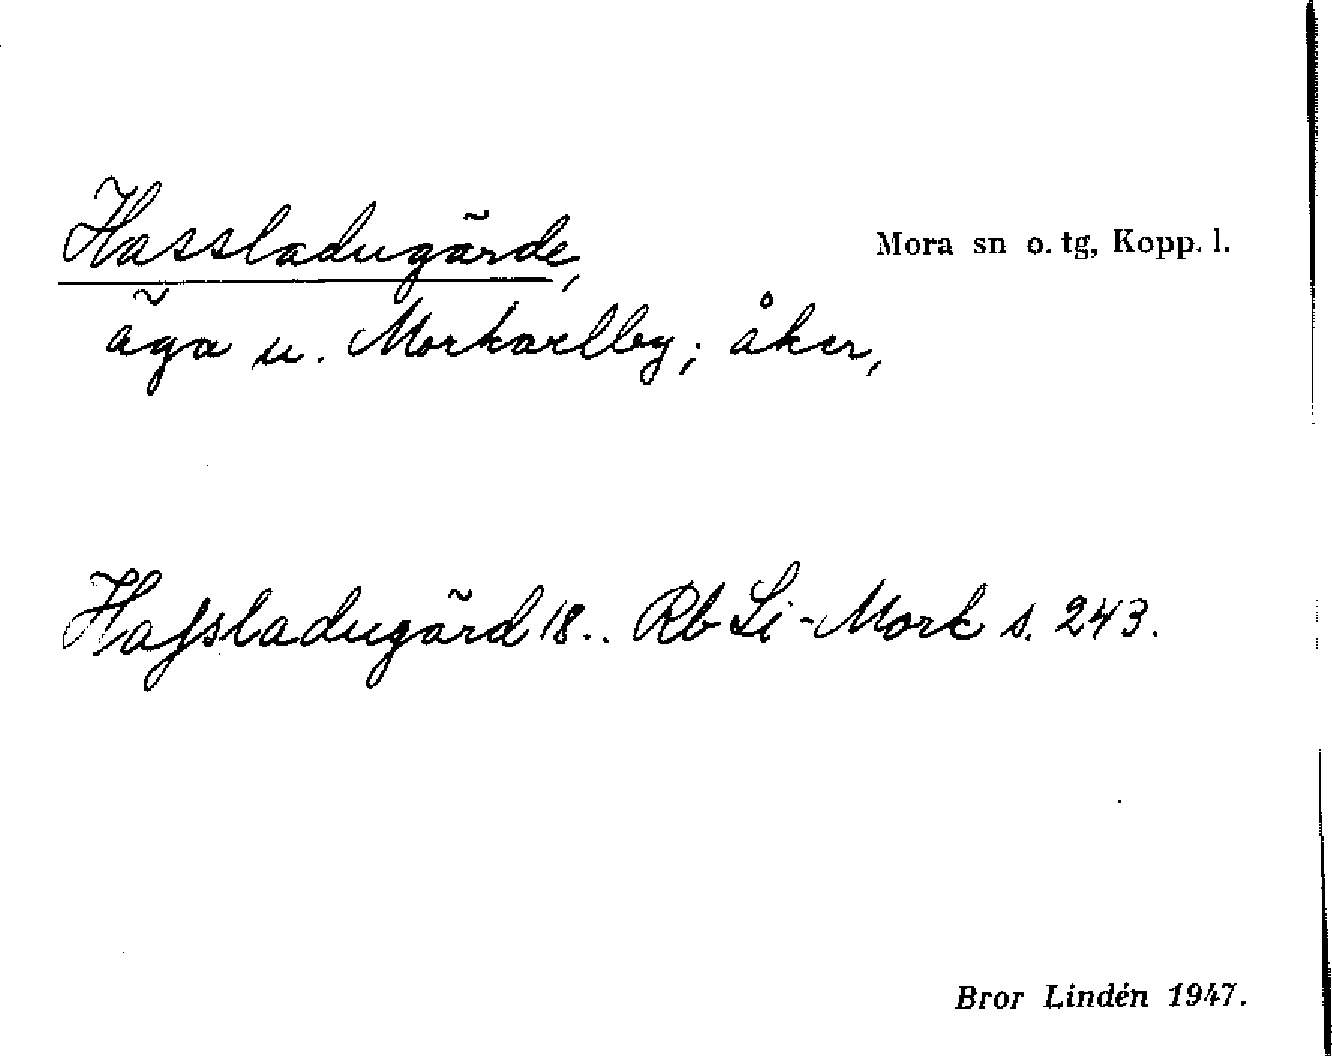 Hassladugärde, Mora sn o. tg, Kopp. l.
äga u. Morkarlby; åker,
Hafsladugärd 18.. Rb Li-Mork s. 243.
Bror Lindén 1947.